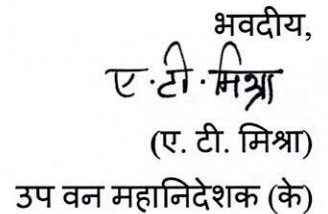 भवदीय,
ए·टी·मिश्रा
(ए. टी. मिश्रा)
उप वन महानिदेशक (के)